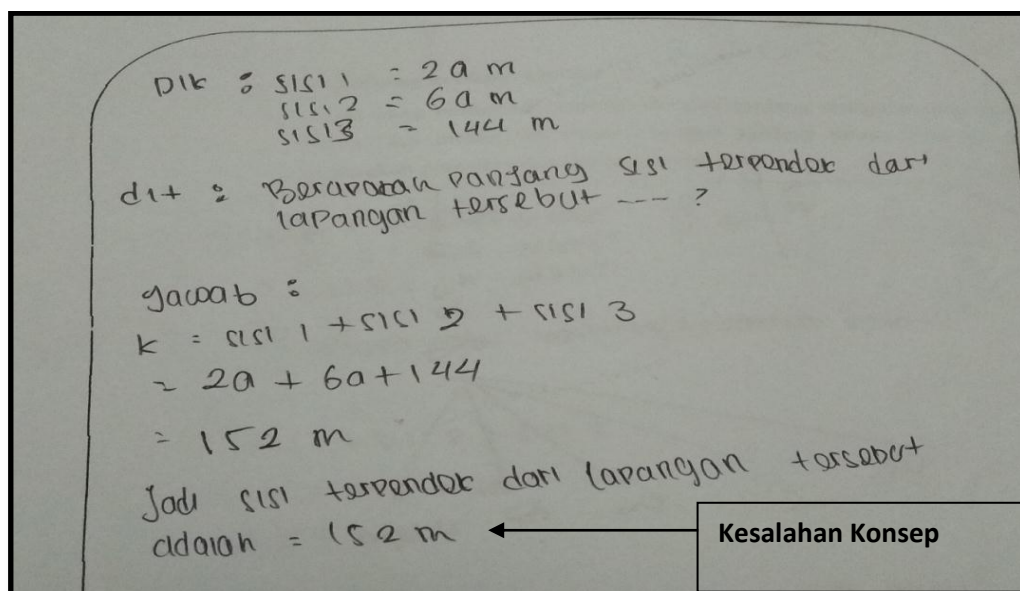 Dik : sisi 1 = 2a m
sisi 2 = 6a m
sisi 3 = 144 m
dit : Berapakah panjang sisi terpendek dari
lapangan tersebut --- ?
Jawab :
k = sisi 1 + sisi 2 + sisi 3
= 2a + 6a + 144
= 152 m
Jadi sisi terpendek dari lapangan tersebut
adalah = 152 m
Kesalahan Konsep